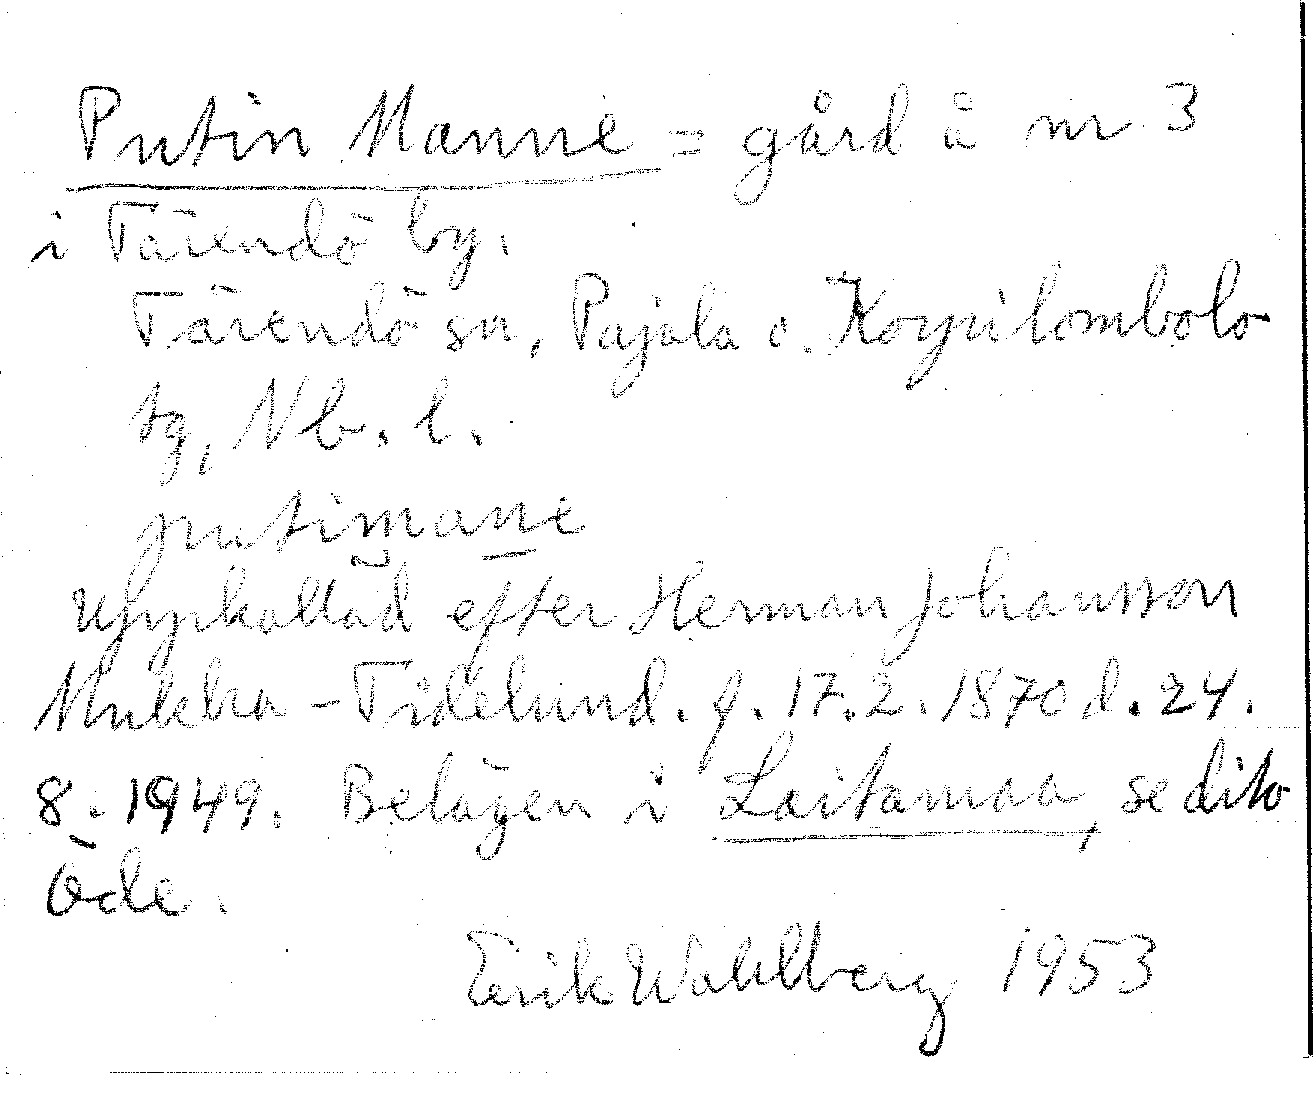 Putin Manne = gård å nr 3
i Tärendö by.
Tärendö sn, Pajala o. Korpilombolo
tg, Nb. l.
putimane
Uppkallad efter Herman Johansson
Mukka-Fidelund. f. 17.2.1870 d. 24.
8. 1949. Belägen i Laitamaa, se dito
Öde.
Erik Wahlberg 1953